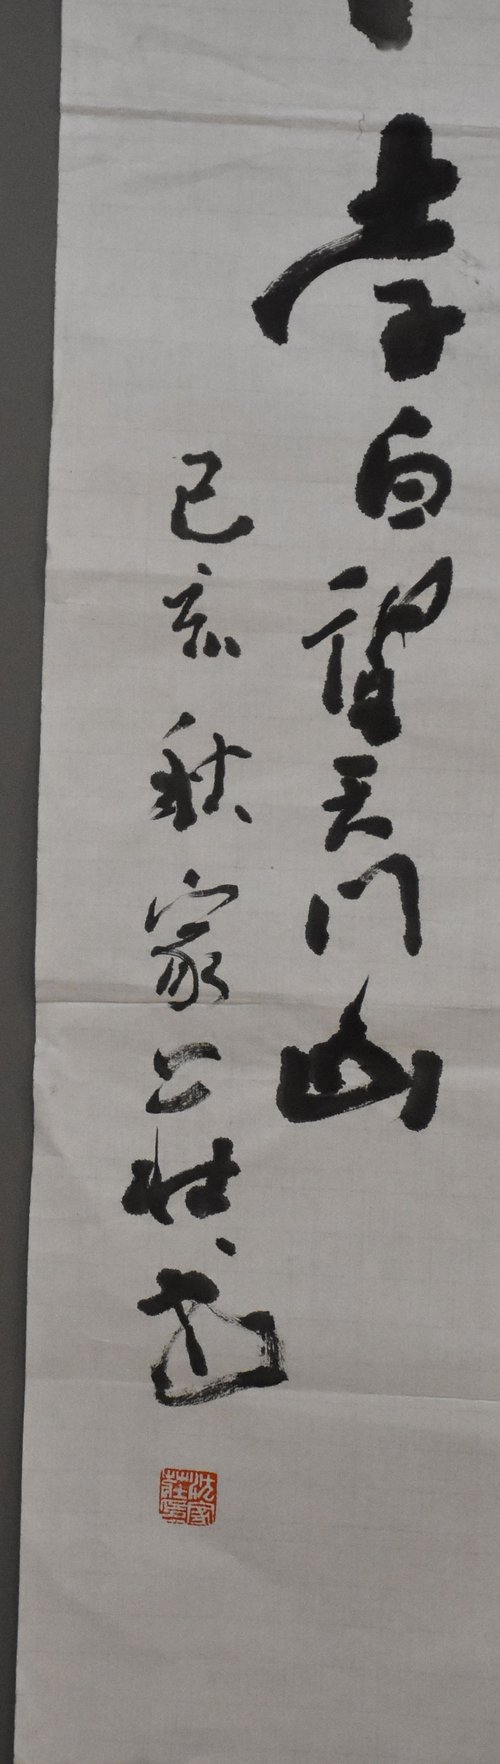 李白望天门山
己亥秋家莊书